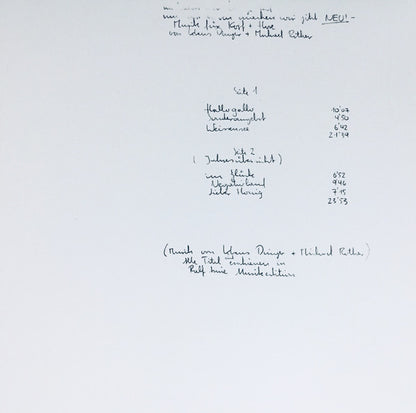 NEU! -
Musik für Kopf +
von Klaus Dinger + Michael Rother
Seite 1
Hallogallo 10'07
Sonderangebot 4'50
Weissensee 6'42
21'39
Seite 2
( Jahresübersicht )
Im Glück 6'52
Negativland 9'46
Lieber Honig 7'15
23'53
(Musik von Klaus Dinger + Michael Rother)
alle Titel erschienen in
Ralf Musikedition